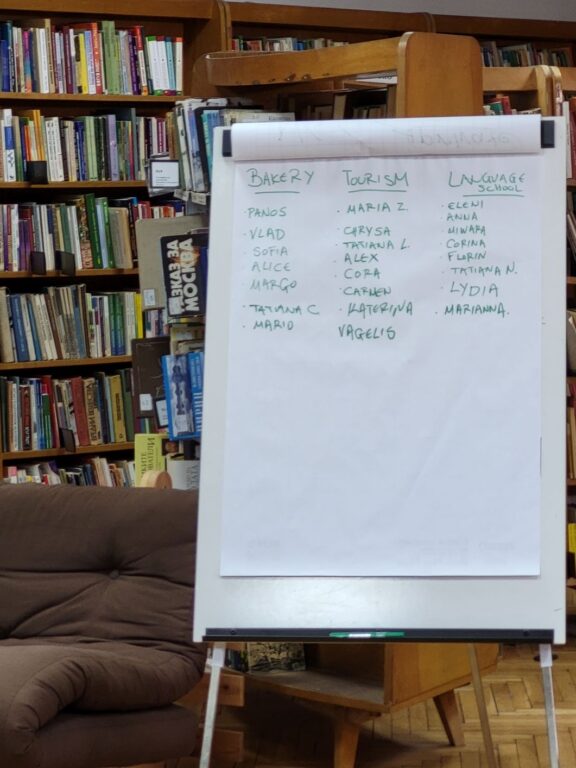 BAKERY
PANOS
· VLAD
· SOFIA
· ALICE
MARGO
· TATIANA C
· MARIO
TOURISM
· MARIA Z.
· CHRYSA
· TATIANA L.
· ALEX
· CORA
· CARMEN
· KATERINA
VAGELIS
LANGUAGE
SCHOOL
· ELENI
ANNA
· CORINA
· FLORIN
· TATIANA N.
· LYDIA
· MARIANNA.
РАЗКАЗ ЗА
МОСКВА